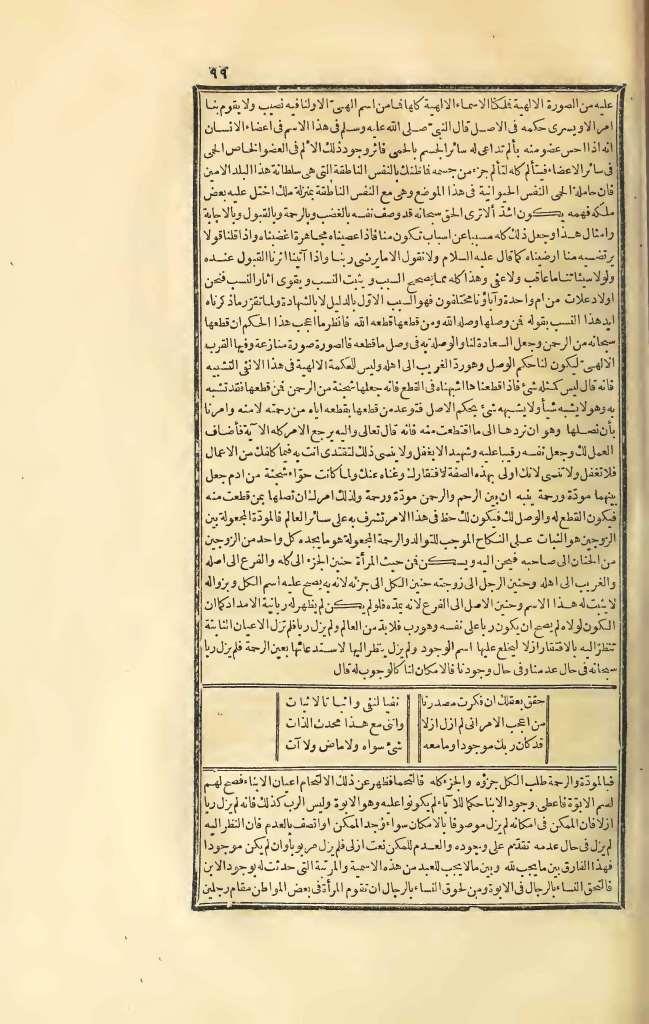 ٩٩
عليه من الصورة الالهية فلكنا الاسماء الالهية كلها فامن اسم الهىّ الا ولنا فيه نصيب ولا يقوم بنا
امر الا ويسرى حكمه فى الاصل قال النبىّ صلى الله عليه وسلم فى هذا الاسم فى اعضاء الانسان
انه اذا احس عضو منه بألم تداعى له سائر الجسم بالحمى فأثر وجود ذلك الألم فى العضو الخاص الحمى
فى سائر الاعضاء فيتألم كله لتألم جزء من جسمه فما ظنك بالنفس الناطقة التى هى سلطانة هذا البلد الامين
فان حاملة الحمى النفس الحيوانية فى هذا الموضع وهى مع النفس الناطقة بمنزلة ملك اختل عليه بعض
ملكه فهمه يكون اشدّ ألا ترى الحق سبحانه قد وصف نفسه بالغضب وبالرحمة وبالقبول وبالاجابة
وامثال هذا وجعل ذلك كله مسببا عن اسباب تكون منا فاذا عصيناه مجاهرة اغضبناه واذا قلنا قولا
يرتضيه منا ارضيناه كما قال عليه السلام ولا نقول الا ما يرضى ربنا واذا آتينا اثرنا القبول عنده
ولولا سيئاتنا ما عاقب ولا عفى وهذا كله مما يصحح السبب ويثبت النسب ويقوى اثار النسب فنحن
اولاد علات من ام واحدة وآباؤنا مختلفون فهو السبب الاوّل بالدليل لا بالشهادة ولما تقرّر ما ذكرناه
ايد هذا النسب بقوله فمن وصلها وصله الله ومن قطعها قطعه الله فانظر ما اعجب هذا الحكم ان قطعها
سبحانه من الرحمن وجعل السعادة لنا والوصلة به فى وصل ما قطعه فالصورة صورة منازعة وفيها القرب
الالهىّ ليكون لنا حكم الوصل وهو ردّ الغريب الى اهله وليس للحكمة الالهية فى هذا الا نفى التشبيه
فانه قال ليس كمثله شئ فاذا قطعنا ها اشبهناه فى القطع فانه جعلها شجنة من الرحمن فمن قطعها فقد تشبه
به وهو لا يشبه شيأ ولا يشبهه شئ بحكم الاصل فتوعد من قطعها بقطعه اياه من رحمته لامنه وامرنا
بأن نصلها وهو ان نردها الى ما اقتطعت منه فانه قال تعالى واليه يرجع الامر كله الآية فأضاف
العمل لك وجعل نفسه رقيبا عليه وشهيدا لا يغفل ولا ينسى ذلك لتقتدى انت به فيما كلفك من الاعمال
فلا تغفل ولا تنسى لانك اولى بهذه الصفة لافتقارك وغناه عنك ولما كانت حوّاء شجنة من ادم جعل
بينهما مودّة ورحمة ينبه ان بين الرحم والرحمن مودّة ورحمة ولذلك امرك ان تصلها بمن قطعت منه
فيكون القطع له والوصل لك فيكون لك حظ فى هذا الامر تشرف به على سائر العالم فالمودّة المجعولة بين
الزوجين هو الثبات على النكاح الموجب للتوالد والرحمة المجعولة هو ما يجده كل واحد من الزوجين
من الحنان الى صاحبه فيحن اليه ويسكن فمن حيث المرأة حنين الجزء الى كله والفرع الى اصله
والغريب الى اهله وحنين الرجل الى زوجته حنين الكل الى جزئه لانه به يصح عليه اسم الكل وبزواله
لا يثبت له هذا الاسم وحنين الاصل الى الفرع لانه يمدّه فلو لم يكن لم يظهر له ربانية الامداد كما ان
الكون لولاه لم يصح ان يكون ربا على نفسه وهو رب فلا بدّ من العالم ولم يزل ربا فلم تزل الاعيان الثابتة
تنظر اليه بالافتقار ازلا ليخلع عليها اسم الوجود ولم يزل ينظر اليها لاستدعائها بعين الرحمة فلم يزل ربا
سبحانه فى حال عدمنا وفى حال وجودنا فالامكان لنا كالوجوب له قال
حقق بعقلك ان فكرت مصدرنا نفيا لنفى واثباتا لاثبات
من اعجب الامر انى لم ازل ازلا وانى مع هذا محدث الذات
قد كان ربك موجودا وما معه شئ سواه ولا ماض ولا آت
فبالمودّة والرحمة طلب الكل جزؤه والجزء كله فالتحما فظهر عن ذلك الالتحام اعيان الابناء فصح لهم
اسم الابوّة فأعطى وجود الابنا حكما للآباء لم يكونوا عليه وهو الابوة وليس الرب كذلك فانه لم يزل ربا
ازلا فان الممكن فى امكانه لم يزل موصوفا بالامكان سواء وُجد الممكن او اتصف بالعدم فان النظر اليه
لم يزل فى حال عدمه تقدّم على وجوده والعدم للممكن نعت ازلى فلم يزل مربوبا وان لم يكن موجودا
فهذا الفارق بين ما يجب لله وبين ما لا يجب للعبد من هذه الاسمية والمرتبة التى حدثت له بوجود الابن
فالتحق النساء بالرجال فى الابوة ومن لحوق النساء بالرجال ان تقوم المرأة فى بعض المواطن مقام رجلين